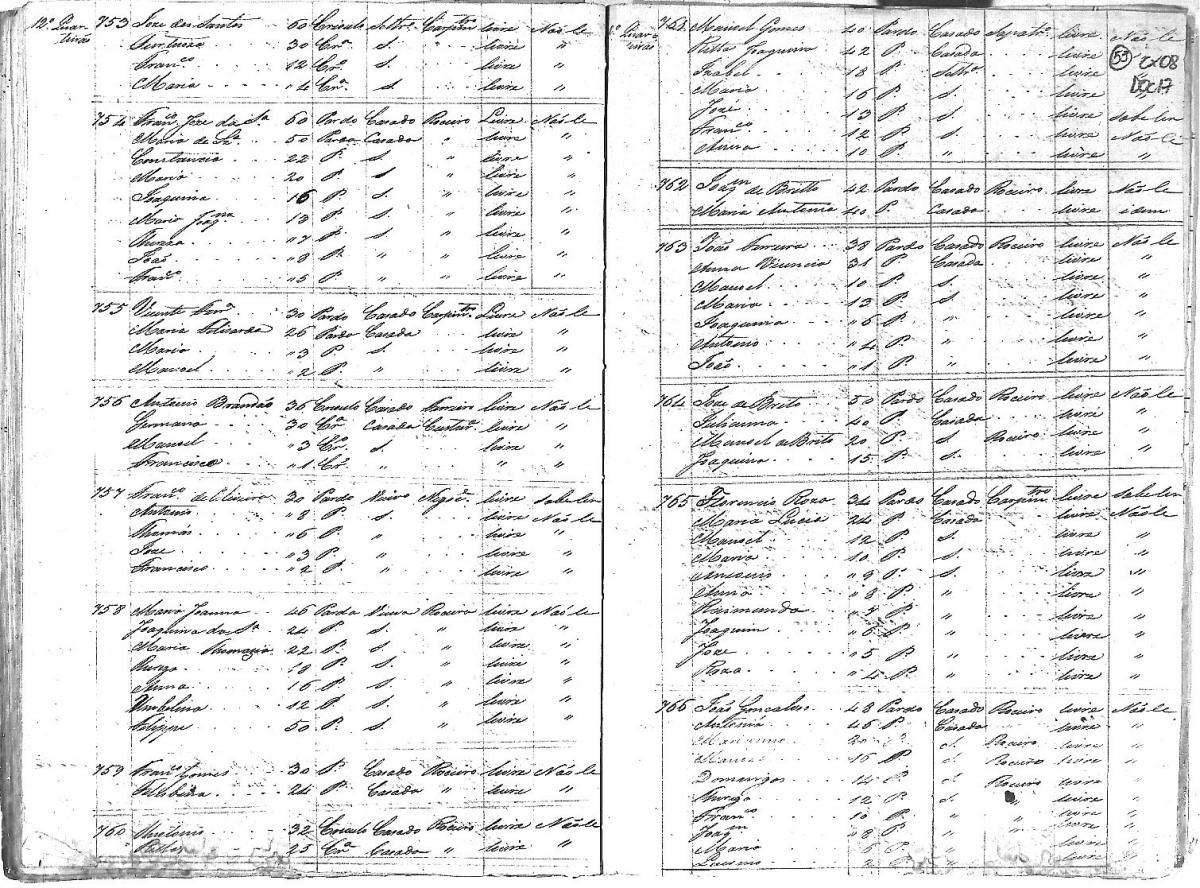 12º Quarteirão
753 Joze dos Santos 60 Crioulo Soltrº Carpintrº livre Não le
Antonia 30 Crª S. livre "
Franco 12 Crº S. livre "
Maria "4 Crª S livre "
754 Franco Joze da Sª 60 Pardo Casado Roceiro Livre Não le
Maria de Sª 50 Parda Casada " livre "
Constancia 22 P. S. " livre "
Maria 20 P. S " livre "
Joaquina 16 P. S " livre "
Maria Joaqna 13 P. S " livre "
"7 P. S. " livre "
João "8 P. " " livre "
Franco "5 P. " " livre "
755 Vicente Ferrª 30 Pardo Casado Carpintrº Livre Não le
Maria 26 Parda Casada livre "
Maria "3 P. S. livre "
Manoel "2 P. " livre "
756 Antonio Brandão 36 Crioulo Casado Ferreiro livre Não le
Germana 30 Crª Casada Costurª livre "
Manoel "3 Crº S. livre "
Francisco "1 Crº " " "
757 Franco de Oliveira 30 Pardo Viuvo Negocº livre Sabe ler
Antonio "8 P. S. livre Não le
Thomás "6 P. " livre "
Joze "3 P. " livre "
Francisco "2 P. " livre "
758 Maria Joanna 46 Parda Viuva Roceira livre Não le
Joaquina da Sª 24 P. S. " livre "
Maria 22 P. S. " livre "
18 P. S. " livre "
Anna 16 P. S. " livre "
Umbelina 12 P. S " livre "
Felippe 50 P. S " livre "
759 Franco Gomes 30 P. Casado Roceiro livre Não le
24 P. Casada " livre "
760 Antonio 32 Crioulo Casado Roceiro livre Não le
25 Crª Casada " livre "
Quarteirão
Manoel Gomes 40 Pardo Casado Sapatrº livre Não le
55 CX08
DOC17
Ritta Joaquina 42 P. Casada livre
Izabel 18 P. Soltrª livre
Maria 16 P. S. livre
José 13 P. S. livre Sabe ler
Franco 12 P. S. livre Não le
Anna 10 P. " livre "
762 Joaqm de Britto 42 Pardo Casado Roceiro livre Não le
Maria Antonia 40 P. Casada livre idem
763 João Ferreira 38 Pardo Casado Roceiro livre Não le
Anna Vicencia 31 P Casada livre "
Manoel 10 P. S. livre "
Maria 13 P. S. livre "
Joaquina "6 P. " livre "
Antonio "4 P. " livre "
João "1 P. " livre "
764 Joze de Brito 50 Pardo Casado Roceiro livre Não le
Julianna 40 P. Casada livre "
Manoel de Brito 20 P. S. Roceiro livre "
Joaquina 15 P. S. livre "
765 Florencio Roza 34 Pardo Casado Carpintrº livre Sabe ler
Maria Lucia 24 P. Casada livre Não le
Manoel 12 P. S. livre "
Maria 10 P. S. livre "
"9 P. S. livre "
Anna "8 P. " livre "
Raimunda "7 P. " livre "
Joaquim "6 P. " livre "
Joze "5 P. " livre "
Roza "4 P. " livre "
766 João Gonsalves 48 Pardo Casado Roceiro livre Não le
Antonia 46 P. Casada livre "
20 P. S. Roceiro livre "
Manoel 16 P. S Roceiro livre "
Domingos 14 P. S Roceiro livre "
12 P. S " livre "
Franco 10 P. " " livre "
Joaqm "8 P. " " livre "
Maria "6 P. " livre "
"2 P. " livre "